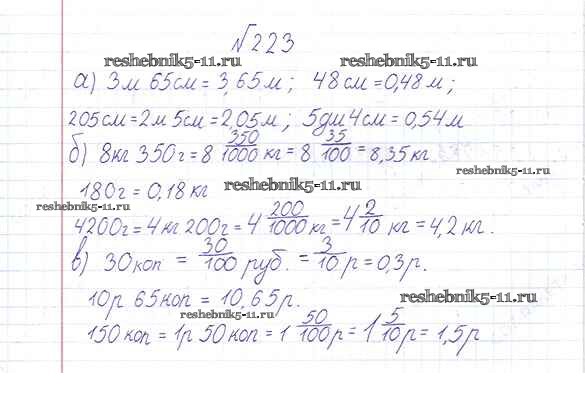 √223
reshebnik5-11.ru reshebnik5-11.ru
а) 3м 65см = 3,65м; 48см = 0,48м;
205см = 2м 5см = 2,05м; 5дм 4см = 0,54м
б) 8кг 350г = 8 350/1000 кг = 8 35/100 = 8,35кг
reshebnik5-11.ru
180г = 0,18кг reshebnik5-11.ru
reshebnik5-11.ru
4200г = 4кг 200г = 4 200/1000 кг = 4 2/10 кг = 4,2кг.
в) 30коп = 30/100 руб. = 3/10 р = 0,3р.
10р 65коп = 10,65р. reshebnik5-11.ru
reshebnik5-11.ru
150коп = 1р 50коп = 1 50/100 р = 1 5/10 р = 1,5р